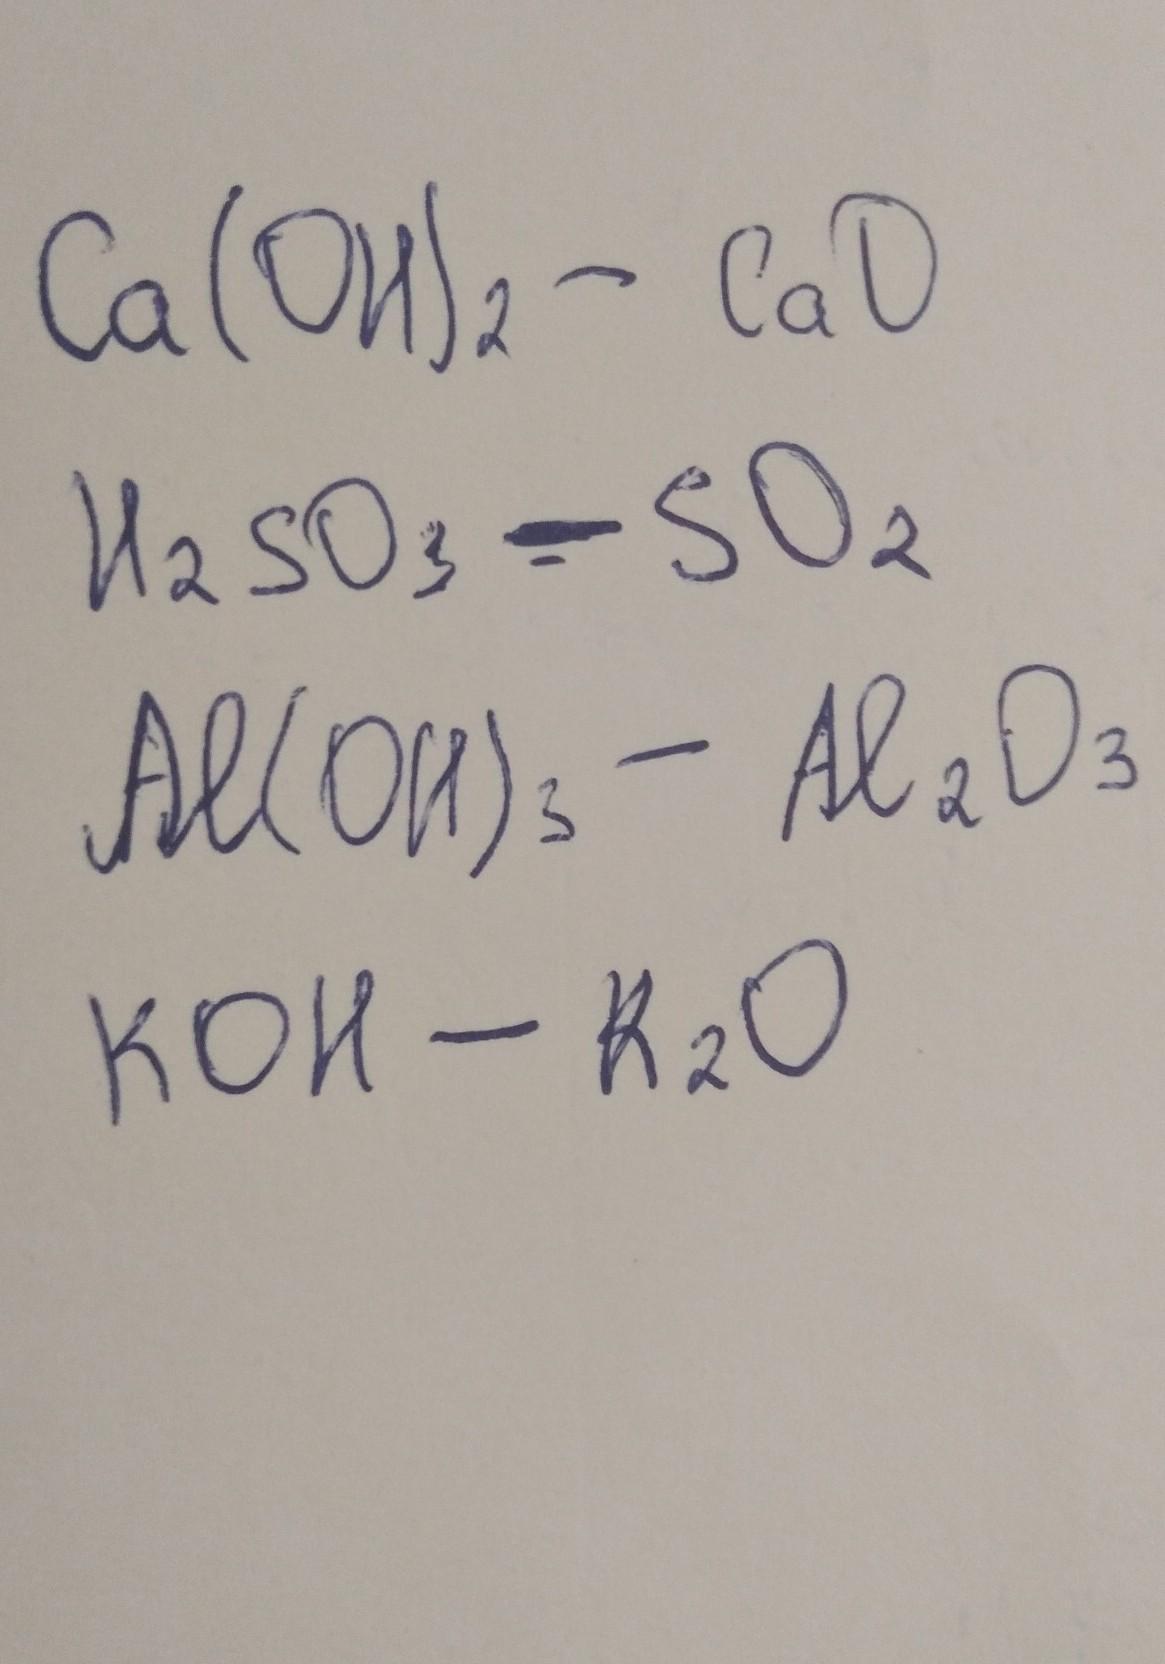 Ca(OH)₂ - CaO
H₂SO₃ - SO₂
Al(OH)₃ - Al₂O₃
KOH - K₂O